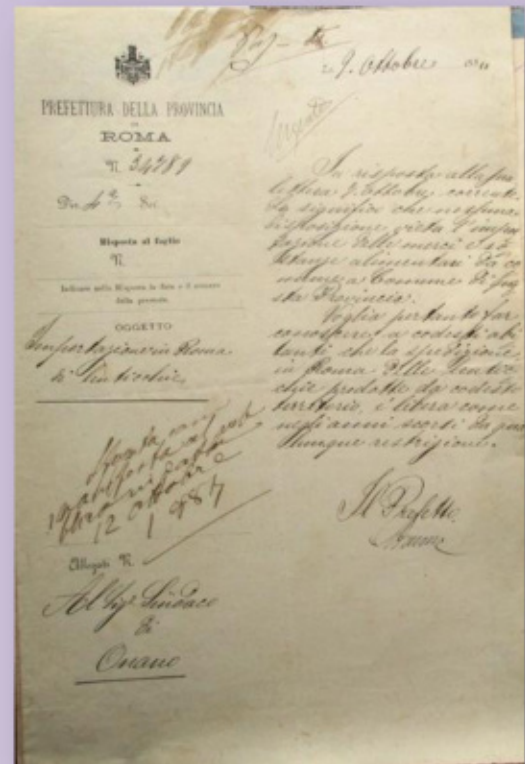 9. Ottobre
PREFETTURA DELLA PROVINCIA
DI
ROMA
N. 34789
Div. 4ª Sez.
Risposta al foglio
N.
Indicare nella Risposta la data e il numero
della presente.
OGGETTO
Importazione in Roma
di lenticchie
12 ottobre
1884
Allegati N.
Al Sig. Sindaco
di
Onano
Urgente
In risposta alla sua
lettera 7. ottobre corrente
Le significo che nessuna
disposizione vieta l'impor
tazione delle merci e so
stanze alimentari da Co
mune a Comune di que
sta Provincia.
Voglia pertanto far
conoscere a codesti abi
tanti che la spedizione
in Roma delle lentic
chie prodotte da codesto
territorio, è libera come
negli anni scorsi da qua
lunque restrizione.
Il Prefetto